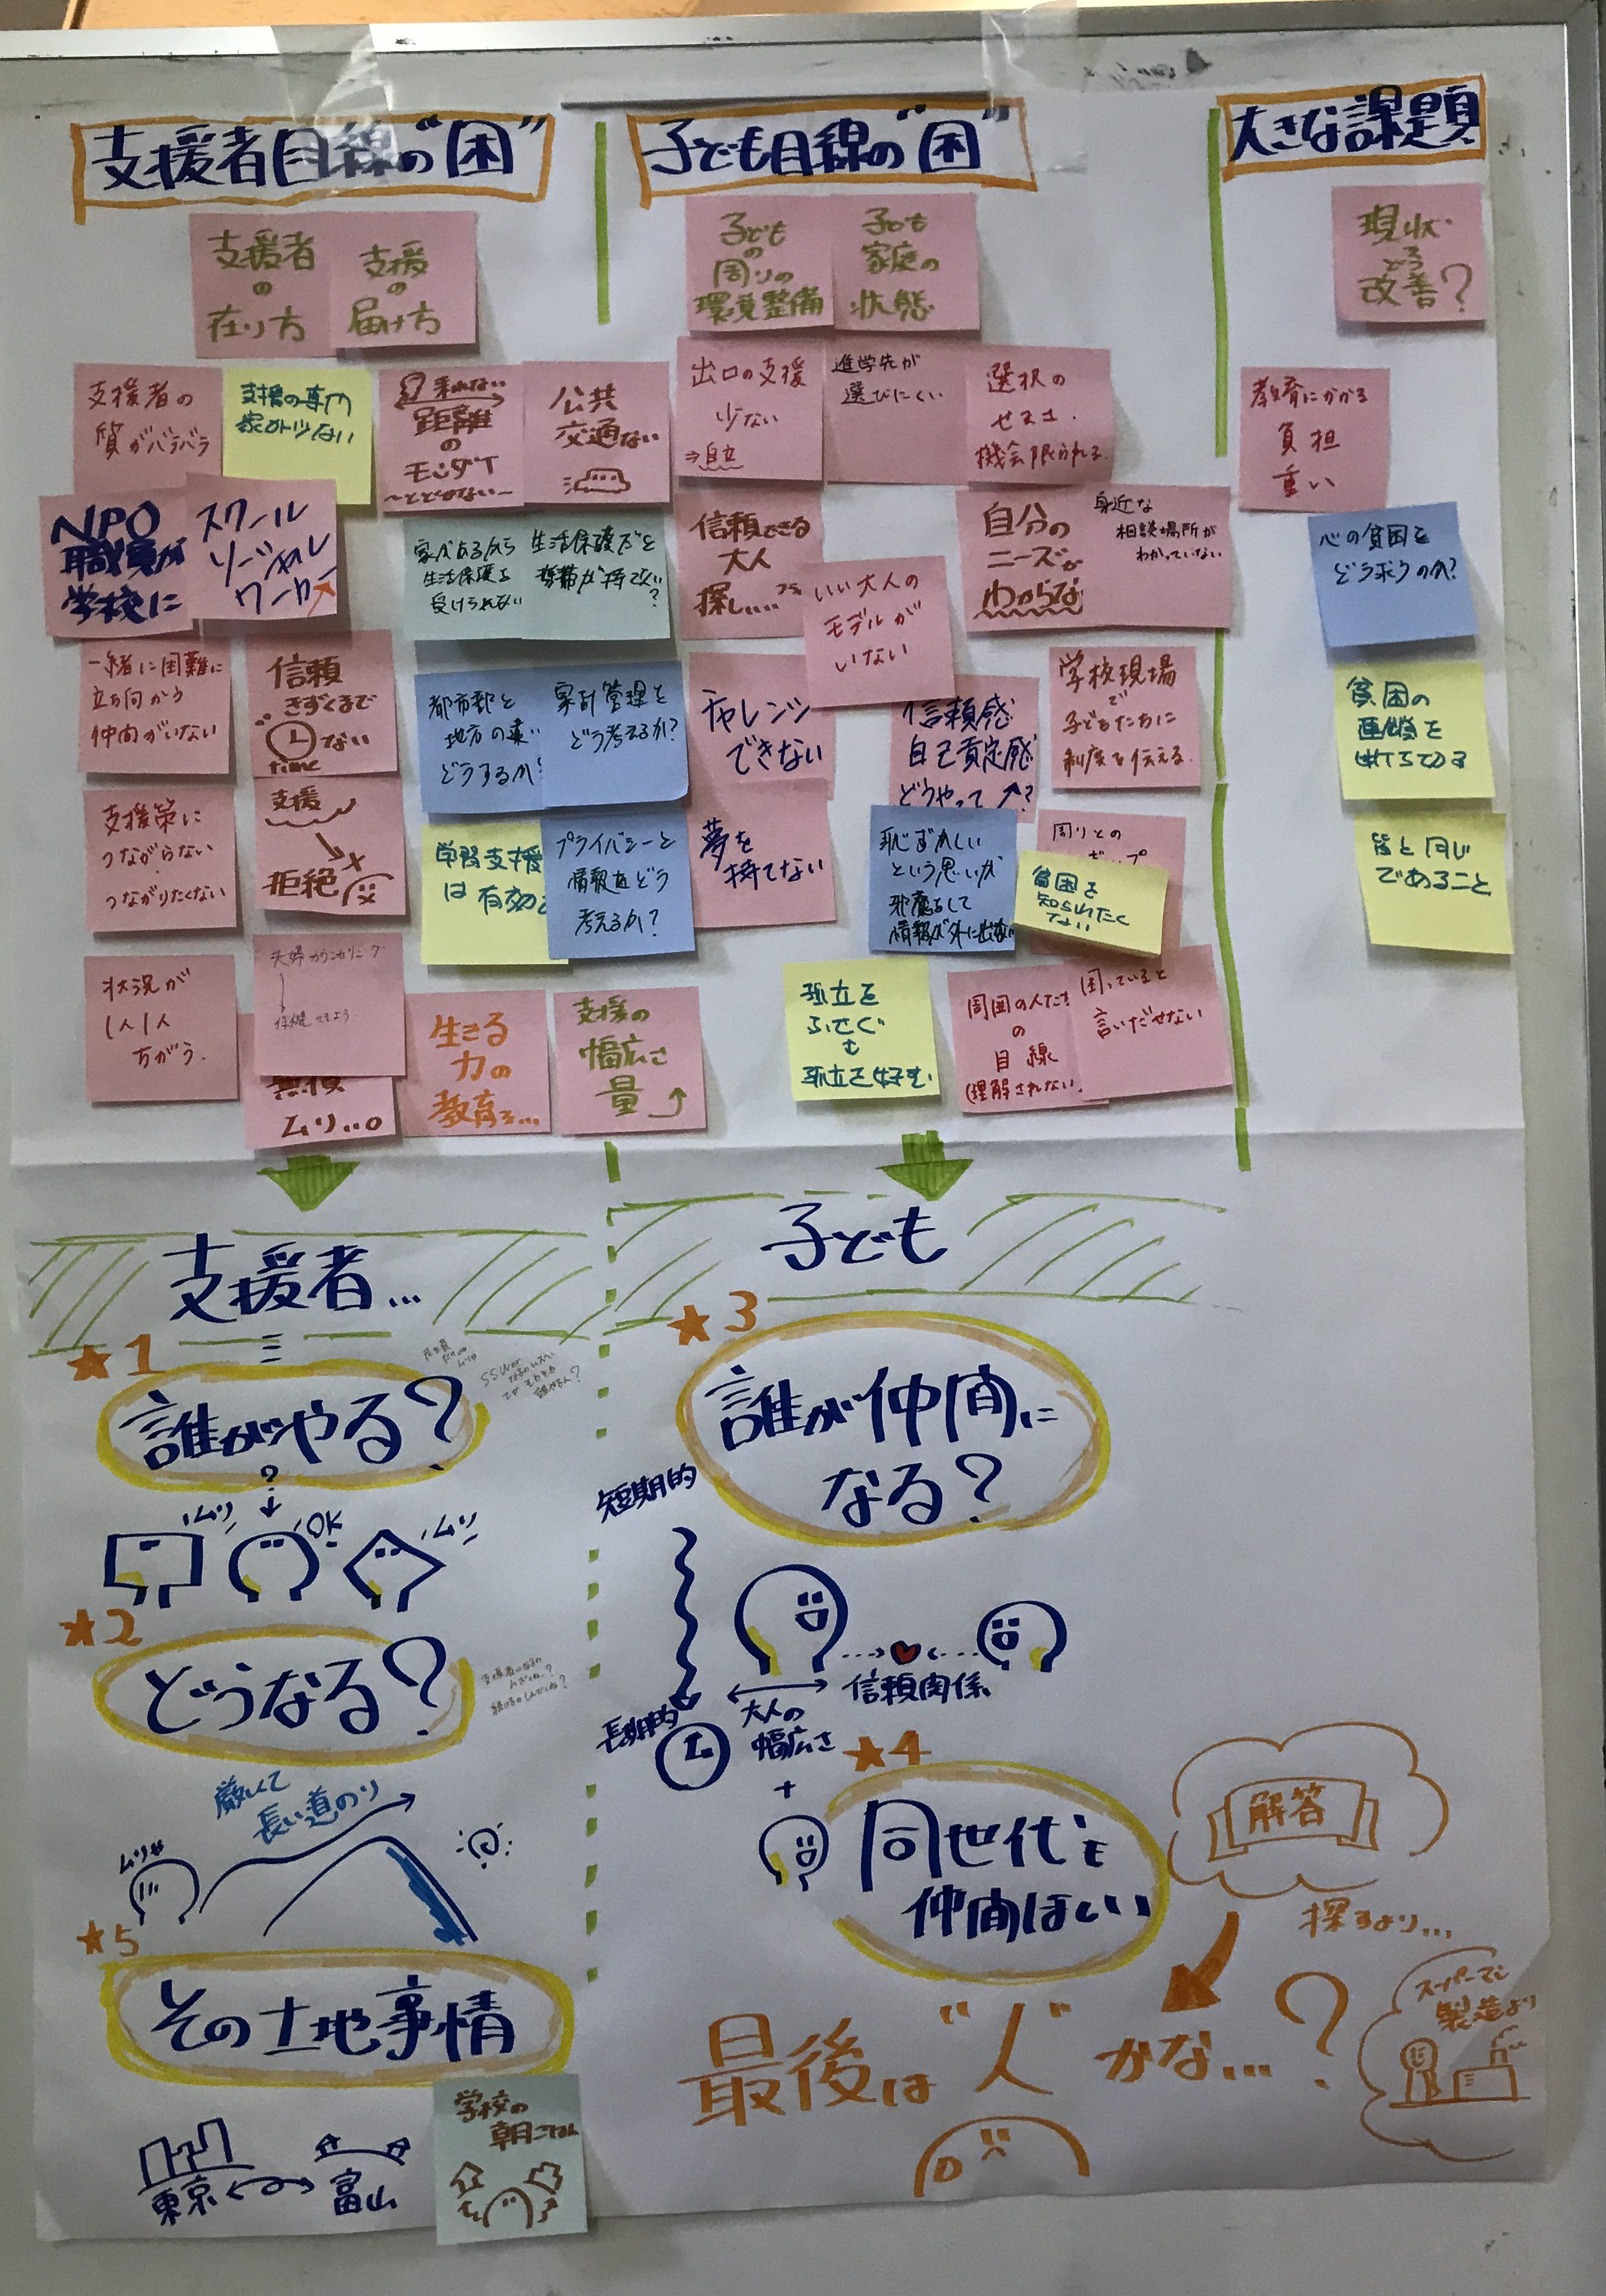 支援者目線の"困"
支援者
の
在り方
支援
の
届け方
支援者の
質がバラバラ
支援の専門
家が少ない
来れない
距離
の
モンダイ
〜とどかない〜
公共
交通ない
NPO
職員が
学校に
スクール
ソーシャル
ワーカー
家があるから
生活保護を
受けられない
生活保護だと
携帯が持てない?
一緒に困難に
立ち向かう
仲間がいない
信頼
きずくまで
ない
time
都市部と
地方の違い
どうするか?
家計管理を
どう考えるか?
支援策に
つながらない
つながりたくない
支援
拒絶
学習支援
は有効
プライバシーと
情報をどう
考えるか?
状況が
1人1人
ちがう.
夫婦カウンセリング
無償
ムリ...。
生きる
力の
教育を...
支援の
幅広さ
量
子ども目線の"困"
子ども
の
周りの
環境整備
子ども
家庭の
状態
出口の支援
少ない
⇒自立
進学先が
選びにくい
選択の
せまさ.
機会限られる.
信頼できる
大人
探し...
いい大人の
モデルが
いない
自分の
ニーズが
わからな
身近な
相談場所が
わかっていない
チャレンジ
できない
信頼感
自己肯定感
どうやって↗?
学校現場
で
子どもたちに
制度を伝える.
夢を
持てない
恥ずかしい
という思いが
邪魔をして
情報が外に出ない
周りとの
ギャップ
貧困を
知られたく
ない
孤立を
ふせぐ
も
孤立を好む.
周囲の人たち
の
目線
(理解されない)
困っていると
言いだせない
大きな課題
現状
どう
改善?
教育にかかる
負担
重い
心の貧困を
どう救うのか?
貧困の
連鎖を
断ち切る
皆と同じ
であること
支援者...
★1
誰がやる?
?
ムリ
OK
ムリ
★2
どうなる?
厳しくて
長い道のり
ムリせ
★5
その土地事情
東京
富山
学校の
朝ごはん
子ども
★3
誰が仲間に
なる?
短期的
長期的
大人の
幅広さ
信頼関係
+
★4
同世代も
仲間ほしい
解答
探るより...
最後は"人"かな...?
スーパーマン
製造より